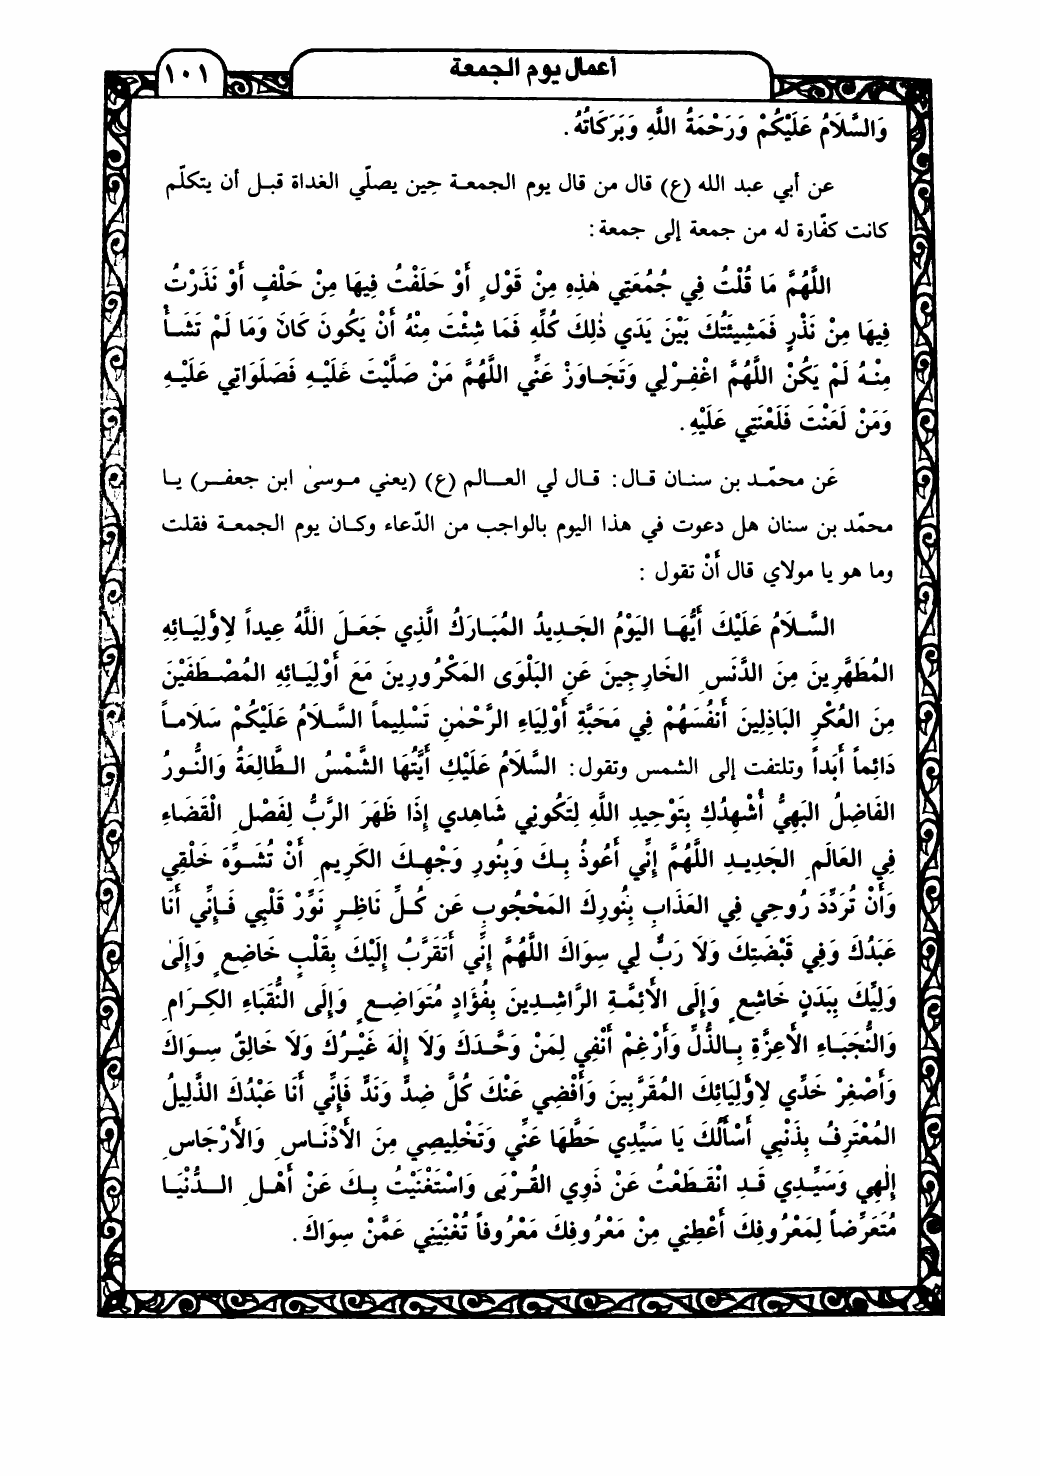 أعمال يوم الجمعة
١٠١
وَالسَّلَامُ عَلَيْكُمْ وَرَحْمَةُ اللَّهِ وَبَرَكَاتُهُ.
عن أبي عبد الله (ع) قال من قال يوم الجمعة حِين يصلّي الغداة قبل أن يتكلّم
كانت كفّارة له من جمعة إلى جمعة:
اللَّهُمَّ مَا قُلْتُ فِي جُمُعَتِي هٰذِهِ مِنْ قَوْلٍ أَوْ حَلَفْتُ فِيهَا مِنْ حَلْفٍ أَوْ نَذَرْتُ
فِيهَا مِنْ نَذْرٍ فَمَشِيئَتُكَ بَيْنَ يَدَي ذٰلِكَ كُلِّهِ فَمَا شِئْتَ مِنْهُ أَنْ يَكُونَ كَانَ وَمَا لَمْ تَشَأْ
مِنْهُ لَمْ يَكُنْ اللَّهُمَّ اغْفِرْلِي وَتَجَاوَزْ عَنِّي اللَّهُمَّ مَنْ صَلَّيْتَ عَلَيْهِ فَصَلَوَاتِي عَلَيْهِ
وَمَنْ لَعَنْتَ فَلَعْنَتِي عَلَيْهِ.
عَن محمّد بن سنان قال: قال لي العالم (ع) (يعني موسىٰ ابن جعفر) يا
محمّد بن سنان هل دعوت في هذا اليوم بالواجب من الدّعاء وكان يوم الجمعة فقلت
وما هو يا مولاي قال أَنْ تقول :
السَّلَامُ عَلَيْكَ أَيُّهَا اليَوْمُ الجَدِيدُ المُبَارَكُ الَّذِي جَعَلَ اللَّهُ عِيداً لِأَوْلِيَائِهِ
المُطَهَّرِينَ مِنَ الدَّنَسِ الخَارِجِينَ عَنِ البَلْوَى المَكْرُورِينَ مَعَ أَوْلِيَائِهِ المُصْطَفَيْنَ
مِنَ العَُكْرِ البَاذِلِينَ أَنْفُسَهُمْ فِي مَحَبَّةِ أَوْلِيَاءِ الرَّحْمٰنِ تَسْلِيماً السَّلَامُ عَلَيْكُمْ سَلَاماً
دَائِماً أَبَداً وتلتفت إلى الشمس وتقول: السَّلَامُ عَلَيْكِ أَيَّتُهَا الشَّمْسُ الطَّالِعَةُ وَالنُّورُ
الفَاضِلُ البَهِيُّ أُشْهِدُكِ بِتَوْحِيدِ اللَّهِ لِتَكُونِي شَاهِدِي إِذَا ظَهَرَ الرَّبُّ لِفَصْلِ الْقَضَاءِ
فِي العَالَمِ الجَدِيدِ اللَّهُمَّ إِنِّي أَعُوذُ بِكَ وَبِنُورِ وَجْهِكَ الكَرِيمِ أَنْ تُشَوِّهَ خَلْقِي
وَأَنْ تُرَدِّدَ رُوحِي فِي العَذَابِ بِنُورِكَ المَحْجُوبِ عَن كُلِّ نَاظِرٍ نَوِّرْ قَلْبِي فَإِنِّي أَنَا
عَبْدُكَ وَفِي قَبْضَتِكَ وَلَا رَبَّ لِي سِوَاكَ اللَّهُمَّ إِنِّي أَتَقَرَّبُ إِلَيْكَ بِقَلْبٍ خَاضِعٍ وَإِلَىٰ
وَلِيِّكَ بِبَدَنٍ خَاشِعٍ وَإِلَى الأَئِمَّةِ الرَّاشِدِينَ بِفُؤَادٍ مُتَوَاضِعٍ وَإِلَى النُّقَبَاءِ الكِرَامِ
وَالنُّجَبَاءِ الأَعِزَّةِ بِالذُّلِّ وَأَرْغِمُ أَنْفِي لِمَنْ وَحَّدَكَ وَلَا إِلٰهَ غَيْرُكَ وَلَا خَالِقَ سِوَاكَ
وَأُصْغِرُ خَدِّي لِأَوْلِيَائِكَ المُقَرَّبِينَ وَأَنْفِي عَنْكَ كُلَّ ضِدٍّ وَنَدٍّ فَإِنِّي أَنَا عَبْدُكَ الذَّلِيلُ
المُعْتَرِفُ بِذَنْبِي أَسْأَلُكَ يَا سَيِّدِي حَطَّهَا عَنِّي وَتَخْلِيصِي مِنَ الأَدْنَاسِ وَالأَرْجَاسِ
إِلٰهِي وَسَيِّدِي قَدِ انْقَطَعْتُ عَنْ ذَوِي القُرْبَى وَاسْتَغْنَيْتُ بِكَ عَنْ أَهْلِ الدُّنْيَا
مُتَعَرِّضاً لِمَعْرُوفِكَ أَعْطِنِي مِنْ مَعْرُوفِكَ مَعْرُوفاً تُغْنِيَنِي عَمَّنْ سِوَاكَ.